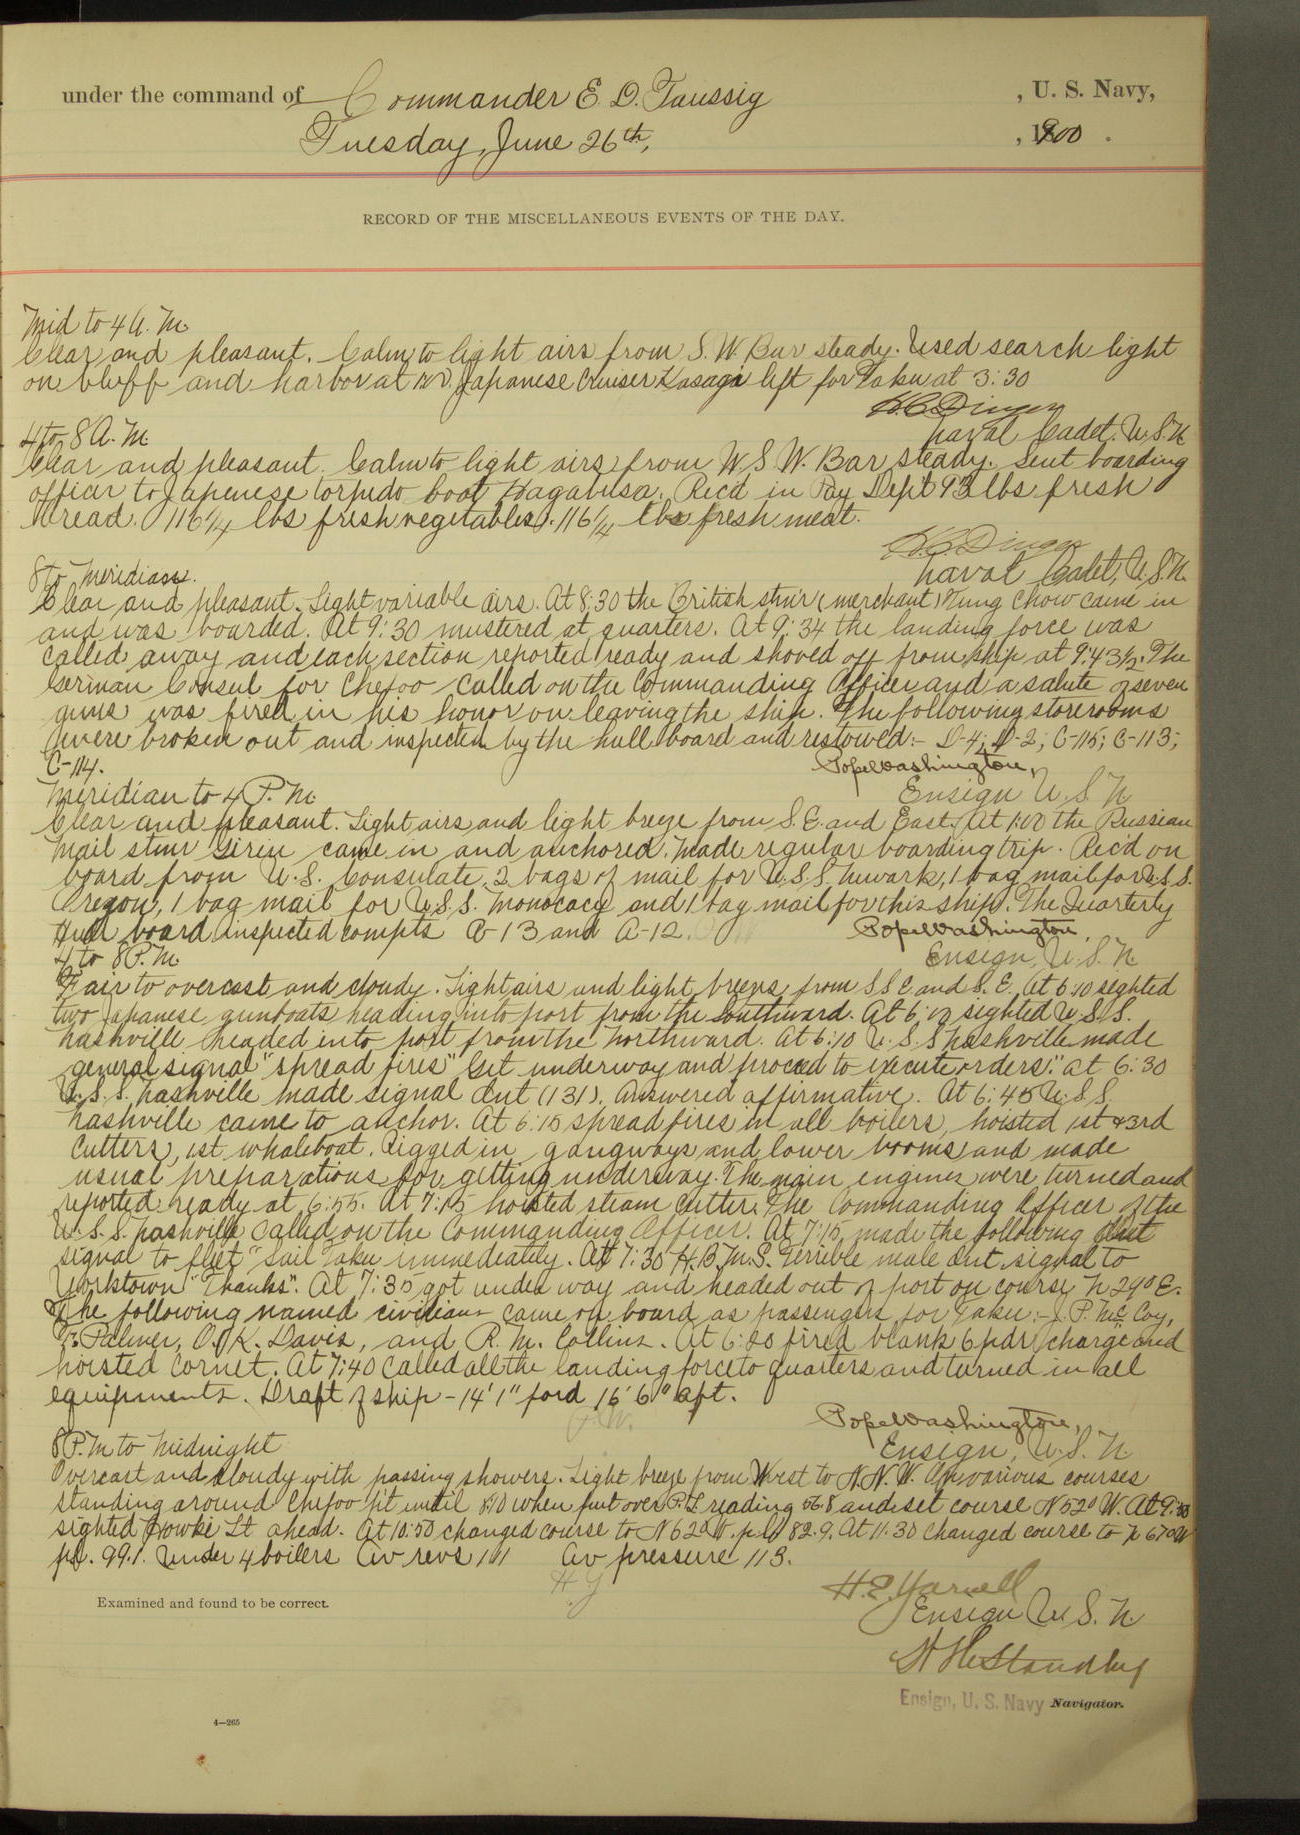 under the command of Commander E. D. Taussig , U. S. Navy,
Tuesday, June 26th, , 1900 .
RECORD OF THE MISCELLANEOUS EVENTS OF THE DAY.
Mid to 4 A. M.
Clear and pleasant. Calm to light airs from S. W. Bar steady. Used search light
on bluff and harbor at Japanese Cruiser Kasagi left for Taku at 3:30
H.C. Dinger
Naval Cadet, U.S.N.
4 to 8 A. M.
Clear and pleasant. Calm to light airs from W. S. W. Bar steady. Sent boarding
officer to Japenese torpedo boat Rec'd in Pay Dep't 93 lbs fresh
bread. 116 1/4 lbs fresh vegetables. 116 1/4 lbs fresh meat.
H.C. Dinger
Naval Cadet, U.S.N.
8 to Meridian.
Clear and pleasant. Light variable airs. At 8:30 the British stm'r (merchant) Tung Chow came in
and was boarded. At 9:30 mustered at quarters. At 9:34 the landing force was
called away and each section reported ready and shoved off from ship at 9:43 1/2. The
German Consul for Chefoo called on the Commanding Officer and a salute of seven
guns was fired in his honor on leaving the ship. The following storerooms
were broken out and inspected by the hull board and restowed:- D-4; D-2; C-115; C-113;
C-114.
Pope Washington,
Ensign U. S. N.
Meridian to 4 P. M.
Clear and pleasant. Light airs and light breeze from S. E. and East. At 1:00 the Russian
Mail stmr Siren came in and anchored. Made regular boarding trip. Rec'd on
board from U. S. Consulate, 2 bags of mail for U.S.S. Newark, 1 bag mail for U.S.S.
Oregon, 1 bag mail for U.S.S. Monocacy and 1 bag mail for this ship. The Quarterly
Hull board inspected compts and A-12.
Pope Washington
Ensign, U. S. N.
4 to 8 P. M.
Fair to overcast and cloudy. Light airs and light breezes from S S E and S. E. At 6:10 sighted
two Japanese gunboats heading into port from the Southward. At 6: sighted U.S.S.
Nashville headed into port from the Northward. At 6:10 U. S. S Nashville made
general signal "spread fires" "Get underway and proceed to execute orders." At 6:30
U. S. S. Nashville made signal dut (131). Answered affirmative. At 6:45 U.S.S.
Nashville came to anchor. At 6:15 spread fires in all boilers, hoisted 1st & 3rd
Cutters, 1st whaleboat. Rigged in gangways and lower booms and made
usual preparations for getting underway. The main engines were turned and
reported ready at 6:55. At 7:15 hoisted steam cutter. The Commanding Officer of the
U. S. S. Nashville called on the Commanding Officer. At 7:15 made the following dut
signal to fleet "Sail Taku immediately. At 7:30 H.B.M.S. Terrible made dut signal to
Yorktown "Thanks". At 7:35 got under way and headed out of port on course N 29° E.
The following named civilians came on board as passengers for Taku:- J. P. McCoy,
F. Palmer, O. K. Davis, and R. M. Collins. At 6:20 fired blank 6 pdr charge and
hoisted Cornet. At 7:40 Called all the landing force to quarters and turned in all
equipments. Draft of ship - 14' 1" for'd 16' 6" aft.
P.W.
Pope Washington,
Ensign, U. S. N.
8 P. M to Midnight
Overcast and cloudy with passing showers. Light breeze from West to N. N. W. On various courses
standing around Chefoo until when put over P. L reading 56.8 and set course N 52° W. At 9:
sighted Howki Lt ahead. At 10:50 changed course to N 62° W. p.l. 82.9. At 11:30 changed course to N 67° W
p.l. 99.1. Under 4 boilers Av revs 101 Av pressure 113.
H.Y
H. E. Yarnell
Ensign U. S. N.
Examined and found to be correct.
W H Standley
Ensign, U. S. Navy Navigator.
4—265